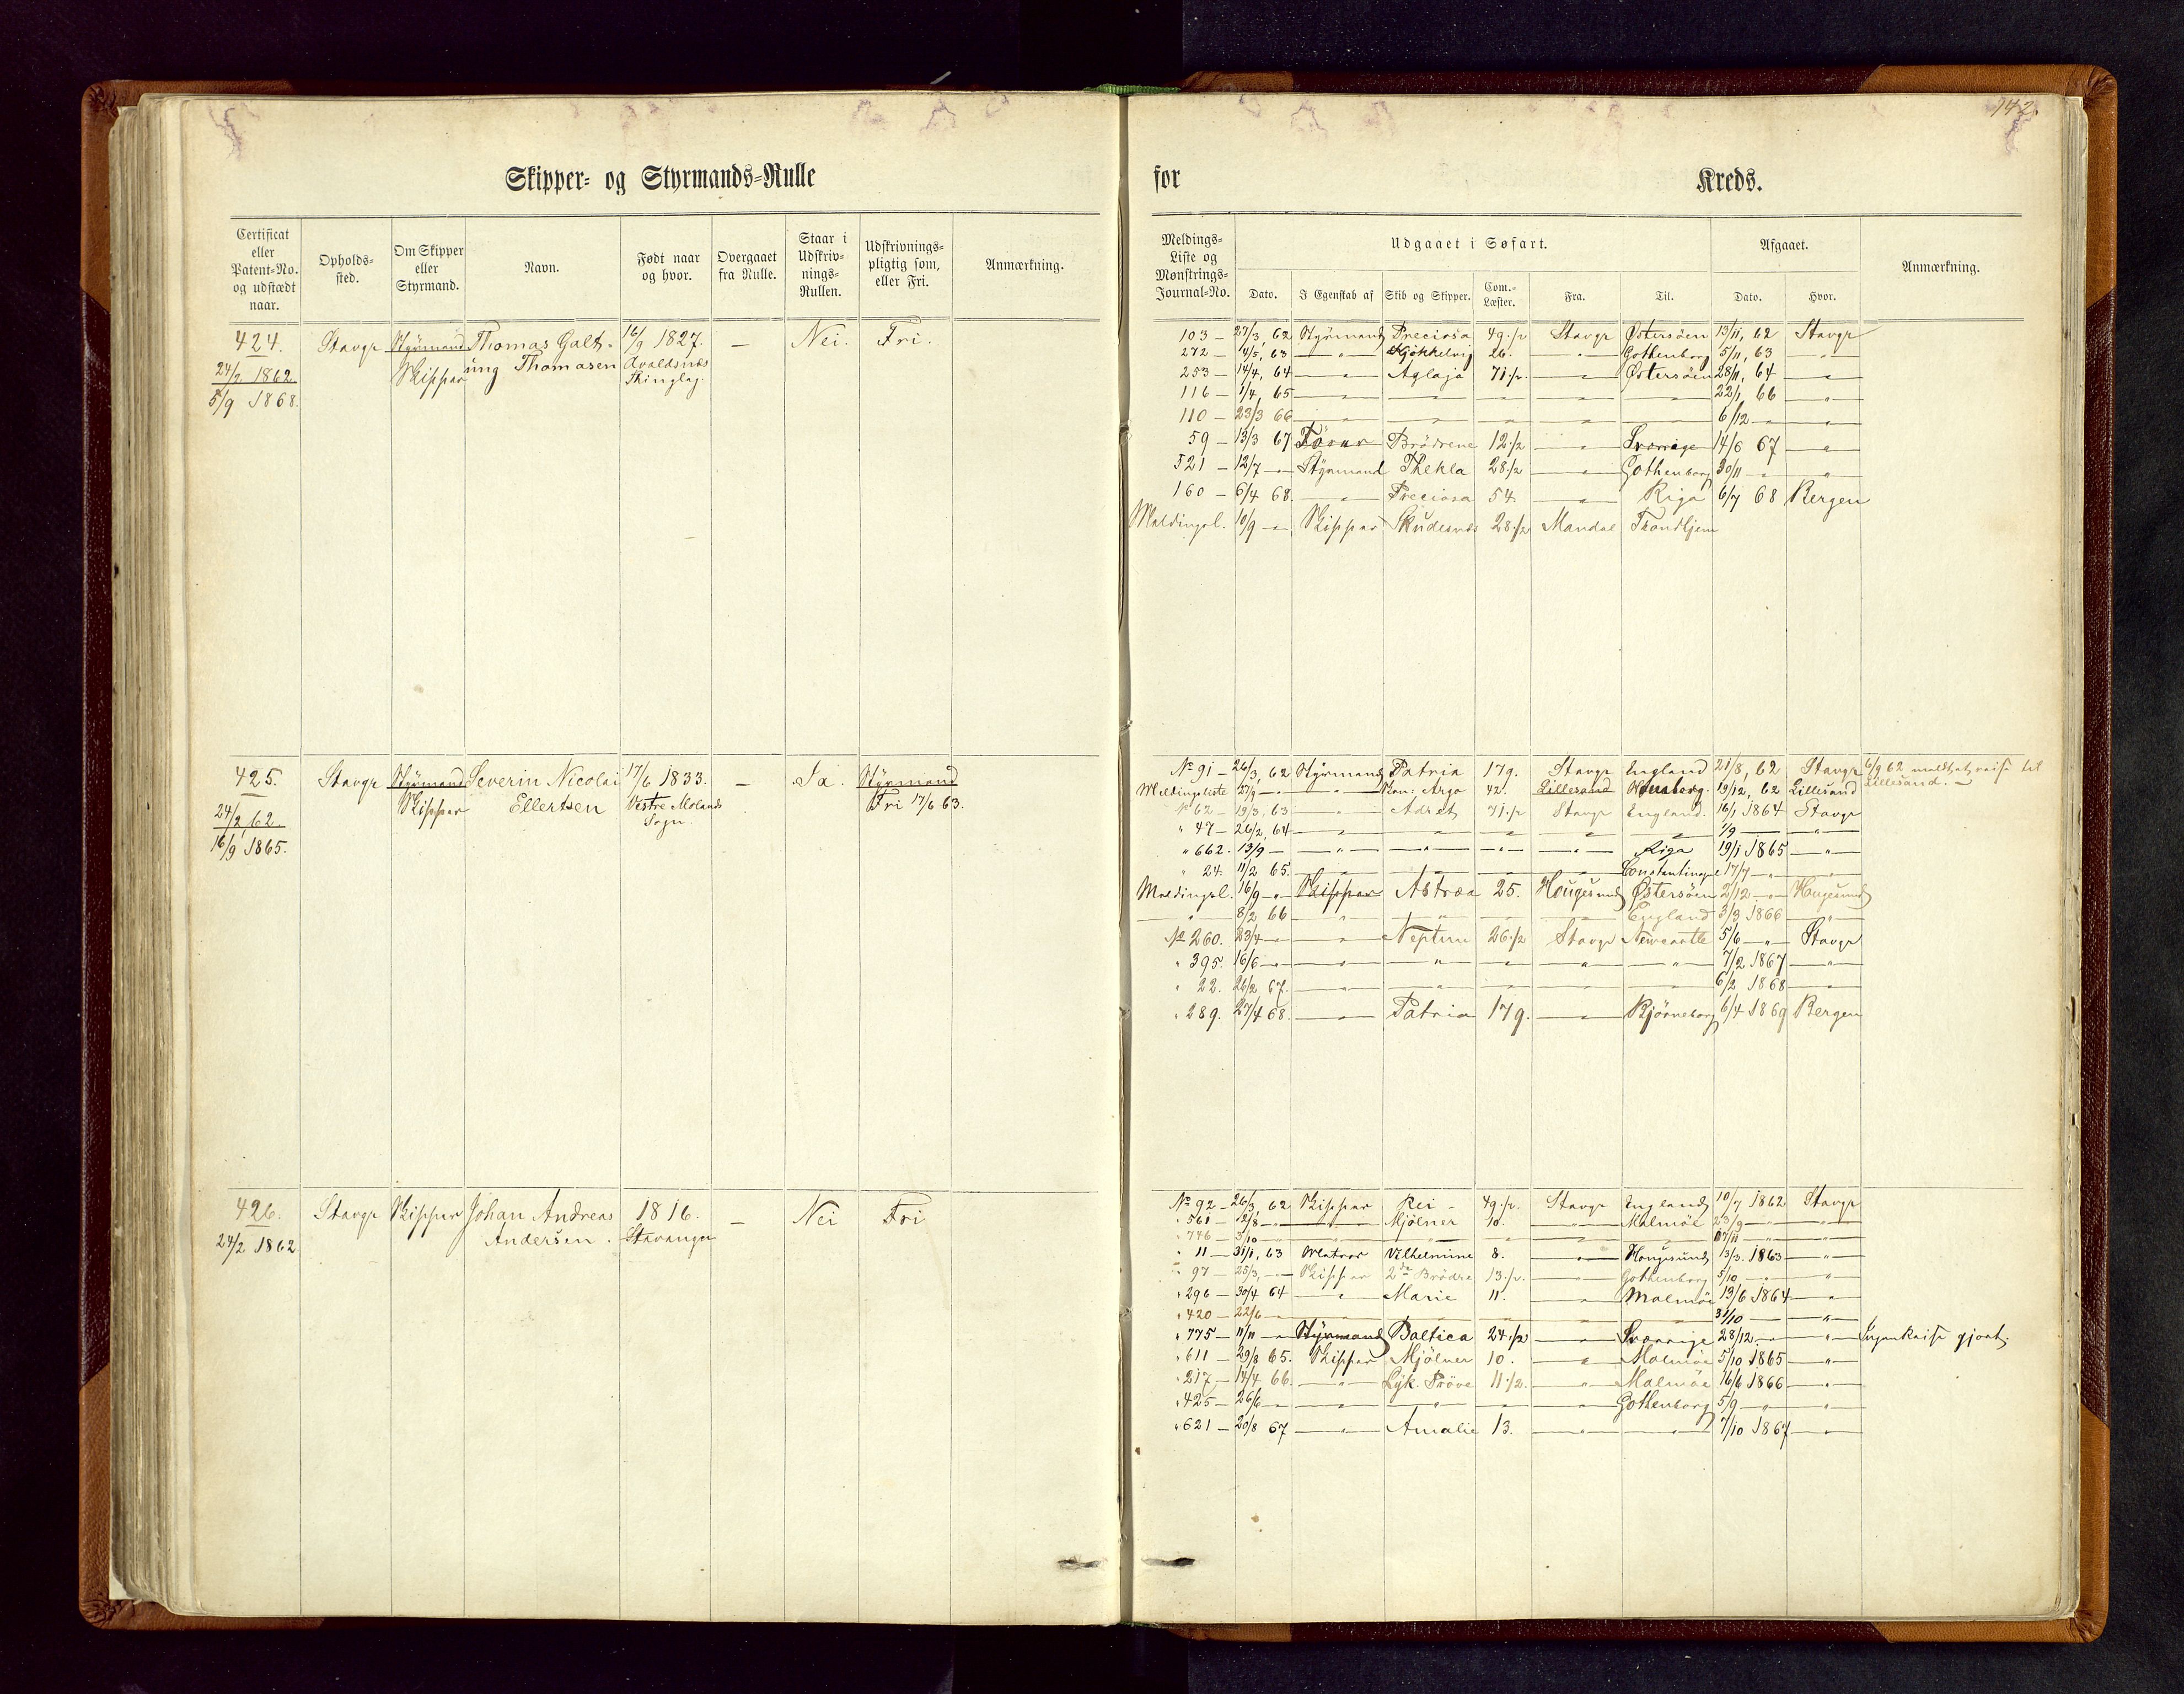 142.
Skipper- og Styrmands-Rulle
for Kreds.
Certificat eller Patent-No. og udstædt naar. | Opholds-sted. | Om Skipper eller Styrmand. | Navn. | Født naar og hvor. | Overgaaet fra Rulle. | Staar i Udskriv-nings-Rullen. | Udskrivnings-pligtig som, eller Fri. | Anmærkning.
Meldings-Liste og Mønstrings-Journal-No. | Udgaaet i Søfart. | Afgaaet. | Anmærkning.
Dato. | I Egenskab af | Skib og Skipper. | Com.-Læster. | Fra. | Til. | Dato. | Hvor.
424. Stavgr Styrmand Thomas Galt- 16/9 1827. — Nei. Fri.
24/2 1862. Skipper ung Thomasen Avaldsnes
5/9 1868. Thinglag.
103 — 27/3, 62 Styrmand Preciosa 49 1/2 Stavgr Østersøen 13/11, 62 Stavgr
272 — 14/5, 63 — " — 26. — " — Gothenborg 5/11, 63 — " —
253 — 14/4, 64 — " — Aglaja 71 1/2 — " — Østersøen 28/11, 64 — " —
116 — 1/4, 65 — — — — — 22/1, 66 — " —
110 — 23/3 66 — " — — — " — — " — — 6/12 — " — " —
59 — 13/3 67 Brødrene 12 1/2 — " — Sverrige 14/6 67 — " —
521 — 12/7 — " — Styrmand Thekla 28 1/2 — " — Gothenborg 30/11 — " — " —
160 — 6/4 68. — " — Preciosa 54 — " — Riga 6/7 68 Bergen
Meldingsl. 10/9 — " — Skipper Skudesnes 28 1/2 Mandal Trondhjem
425. Stavgr Styrmand Severin Nicolai 17/6 1833. — Ja. Styrmand
24/2, 62. Skipper Ellertsen Vestre Molands Fri 17/6 63.
16/9 1865. Sogn.
No 91 — 26/3, 62 Styrmand Patria 179. Stavgr England 21/8, 62 Stavgr 6/9 62 meldt at reise til
Meldingsliste 27/9 — " — " — Argo 42. Lillesand 19/12, 62 Lillesand Lillesand. —
No 62 — 19/3, 63 — " — Adret 71 1/2 Stavgr England. 16/1 1864 Stavgr
" 47 — 26/2, 64 — " — — " — — " — — " — — " — 1/9 — — " —
" 662. 13/9 — — " — — " — — " — — " — Riga 19/1 1865 — " —
" 24. 11/2 65. — Constantinopel 17/7 — " — " —
Meldingsl. 16/9 — " — Skipper Astræa 25. Hougesund Østersøen 2/12 — " — Hougesund
— " — 8/2 66 — " — — " — — England 3/3 1866 — " —
No 260. 23/4 — " — " — Neptun 26 1/2 Stavgr Newcastle 5/6 — " — Stavgr
" 395. 16/6 — " — " — — " — — " — — " — — " — 7/2 1867 — " —
" 22. 26/2 67. — " — — " — — " — — " — — " — 6/2 1868 — " —
" 289. 27/4 68. — " — Patria 179. — " — Bjørneborg 6/4 1869 Bergen
426. Stavgr Skipper Johan Andreas 1816. — Nei Fri
24/2 1862 Andersen. Stavanger
No 92 — 26/3, 62 Skipper Rei 49 1/2. Stavgr England 10/7 1862 Stavgr
" 561 — 12/8 — " — Mjölner 10. — " — Malmöe 23/9 — " — " —
" 746 — 3/10 — " — — " — — " — — " — — " — 17/11 — " — " —
" 11 — 31/1, 63 Matros Vilhelmine 8. — " — Hougesund 13/3. 1863 — " —
" 97 — 25/3, — " — Skipper 2de Brødre 13 1/2. — " — Gothenborg 5/10 — " — " —
" 296 — 30/4 64 — " — Marie 11. — " — Malmöe 13/6 1864 — " —
" 420 — 22/6 — " — " — — " — — " — — " — — " — 31/10 — — " —
" 775 — 11/11 — " — Styrmand Baltica 24 1/2 — " — Sverrige 28/12 — " — " — Ingen Reise gjort.
" 611 — 29/8 65. Skipper Mjölner 10. — " — Malmöe 5/10 1865 — " —
" 217 — 14/4 66. — " — Lyk. Pröve 11 1/2. — " — Malmöe 16/6 1866 — " —
" 425 — 26/6 — " — " — — " — — " — — " — Gothenborg 5/9 — " — " —
" 621 — 20/8 67 — " — Amalie 13. — " — — " — 7/10 1867 — " —